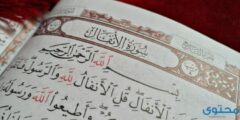 سُورَةُ الأَنفَالِ
بِسْمِ اللَّهِ الرَّحْمَٰنِ الرَّحِيمِ
الْأَنفَالِ قُلِ الْأَنفَالُ لِلَّهِ وَالرَّسُولِ
وَأَطِيعُوا اللَّهَ وَرَسُولَهُ
محتوى